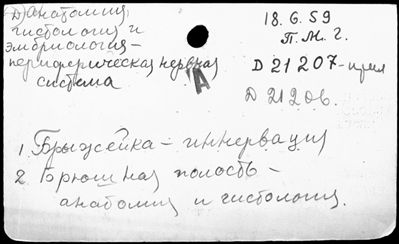 (Д) анатомия,
гистология и
эмбриология -
периферическая нервная
система
А
18.6.59
П.М.Г.
Д 21207 - прил
Д 21206.
1. Брыжейка - иннервация
2. Брюшная полость -
анатомия и гистология.